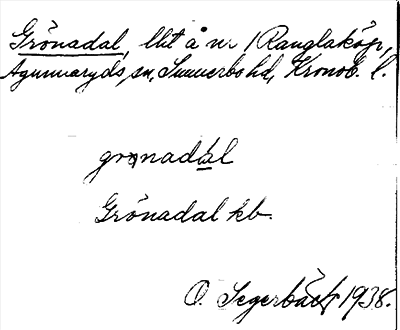 Grönadal, lht å nr 1 Ranglaköp,
Agunnaryds sn, Sunnerbo hd, Kronob. l.
grɘnadál
Grönadal kb.
O. Segerbäck 1938.